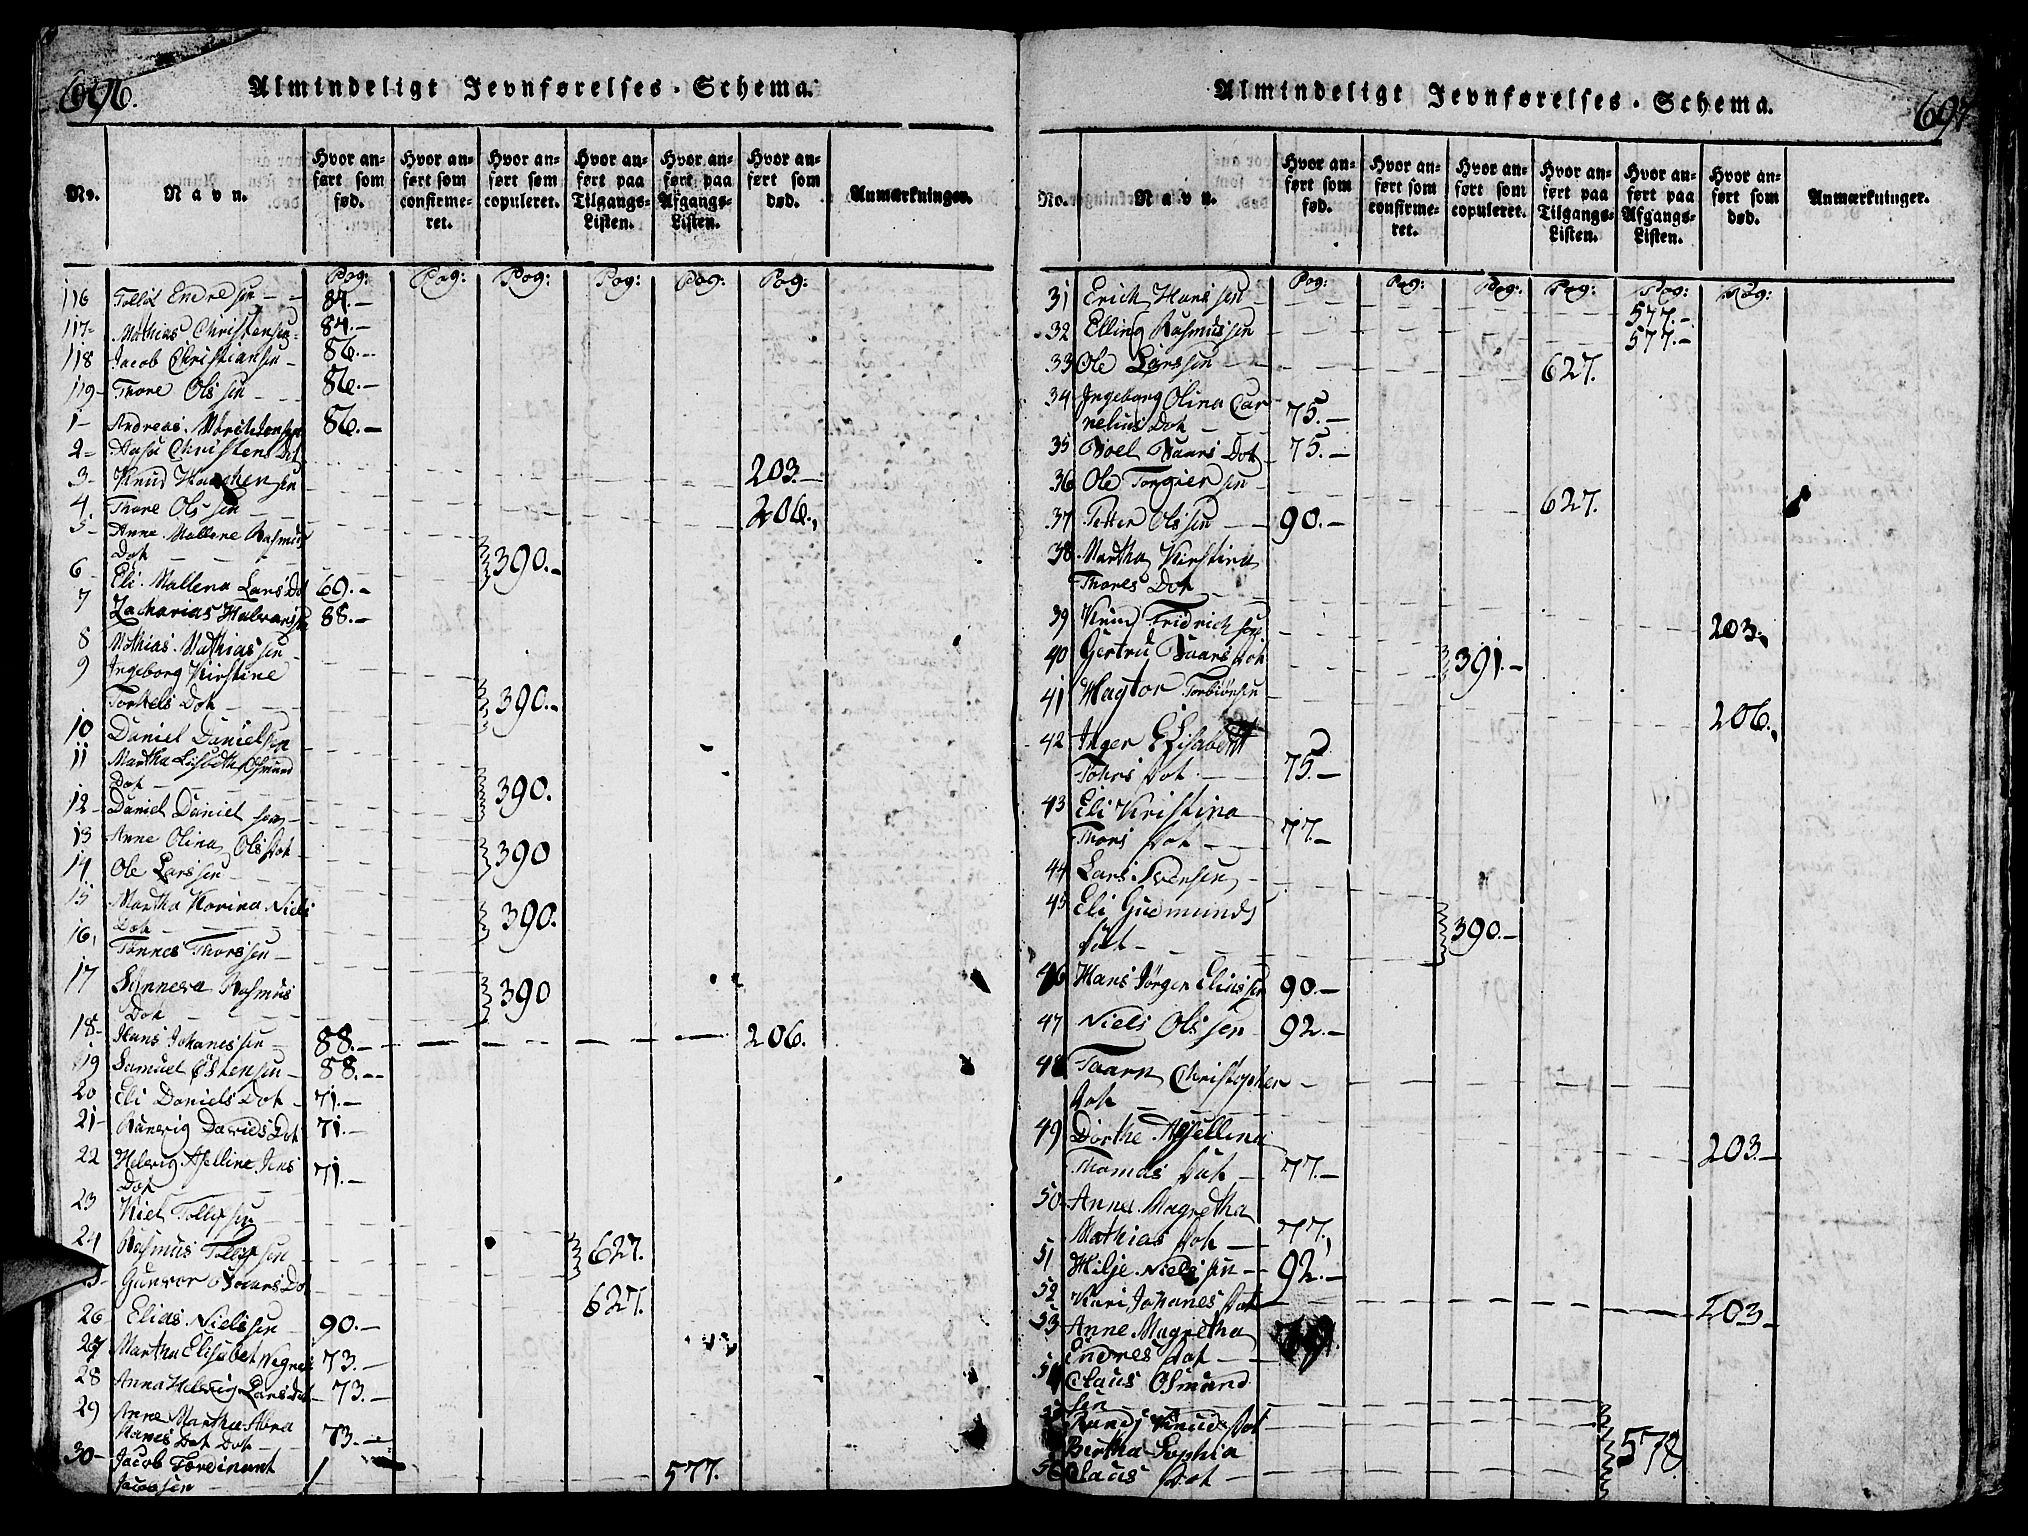 696.
Almindeligt Jevnførelses-Schema.
No.
Navn.
Hvor anført som fød.
Hvor anført som confirmeret.
Hvor anført som copuleret.
Hvor anført paa Tilgangs-Listen.
Hvor anført paa Afgangs-Listen.
Hvor anført som død.
Anmærkninger.
Pag: Pag: Pag: Pag: Pag: Pag:
116 Tollöf Endresen 84.-
117- Mathias Christensen 84.-
118 Jacob Christiansen 86.-
119- Thore Olssen 86.-
1- Andreas 86.-
2- Aasa Christens Dot
3- Knud sen 203.-
4. Thore Olssen 206.
5- Anne Mallene Rasmus
Dot 390.-
6- Eli Mallena Lars Dot 69.-
7 Zacharias Halvorsen 88.-
8 Mathias Mathiassen
9 Ingeborg Kirstine
Torkels Dot 390.-
10 Daniel Danielsen
11 Martha Lisbeth Osmund
Dot 390.
12- Daniel Danielsen
13 Anne Olina Ols Dot 390
14 Ole Larssen
15 Martha Karina Niels
Dot 390.
16, Tönnes Thorssen
17 Synneva Rasmus
Dot 390
18- Hans Johanessen 88.- 206.
19 Samuel Östensen 88.-
20 Eli Daniels Dot 71.-
21- Ranevig Davids Dot 71.-
22 Helvig Aselline Jens
Dot 71.-
23 Niel Tollefsen
24 Rasmus Tollefsen 627.
5- Gunvor Dot 627.
26 Elias Nielssen 90.-
27 Martha Elisabet 73.-
28 Anna Helvig Lars Dot 73.-
29 Anne Martha Abra
hames Dot Dot 73.-
30- Jacob Ferdinant
Jacobsen 577.
697
Almindeligt Jevnførelses-Schema.
No.
Navn.
Hvor anført som fød.
Hvor anført som confirmeret.
Hvor anført som copuleret.
Hvor anført paa Tilgangs-Listen.
Hvor anført paa Afgangs-Listen.
Hvor anført som død.
Anmærkninger.
Pag: Pag: Pag: Pag: Pag: Pag:
31 Erich Hanssen 577.-
32 Elling Rasmussen 577.-
33 Ole Larssen 627.
34 Ingeborg Olina Cor
nelius Dot 75.-
35 Dot 75.-
36 Ole Torgiersen 627.
37 Petter Olssen 90.-
38 Martha Kirstina
Thores Dot
39 Knud Fridrichsen 203.
40 Gertru Dot 391.-
41 Torbiörsen 206.
42 Inger Elisabeth
Dot 75.-
43 Eli Kristina
Thors Dot 77.-
44 Lars Svensen
45 Eli Gudmunds
Dot 390.-
46 Hans Jörgen Eliassen 90.-
47 Niels Olssen 92.-
48 Christopher
Dot
49 Dorthe Asellina 203.-
Thomas Dot 77.-
50 Anne Magretha
Mathias Dot 77.
51 Nielssen 92.-
52 Kari Johanes Dot 203.-
53 Anne Magretha
Endres Dot
54 Claus Osmund
sen
Randi Knuds Dot
Bertha Sophia 578.
56 Claus Dot